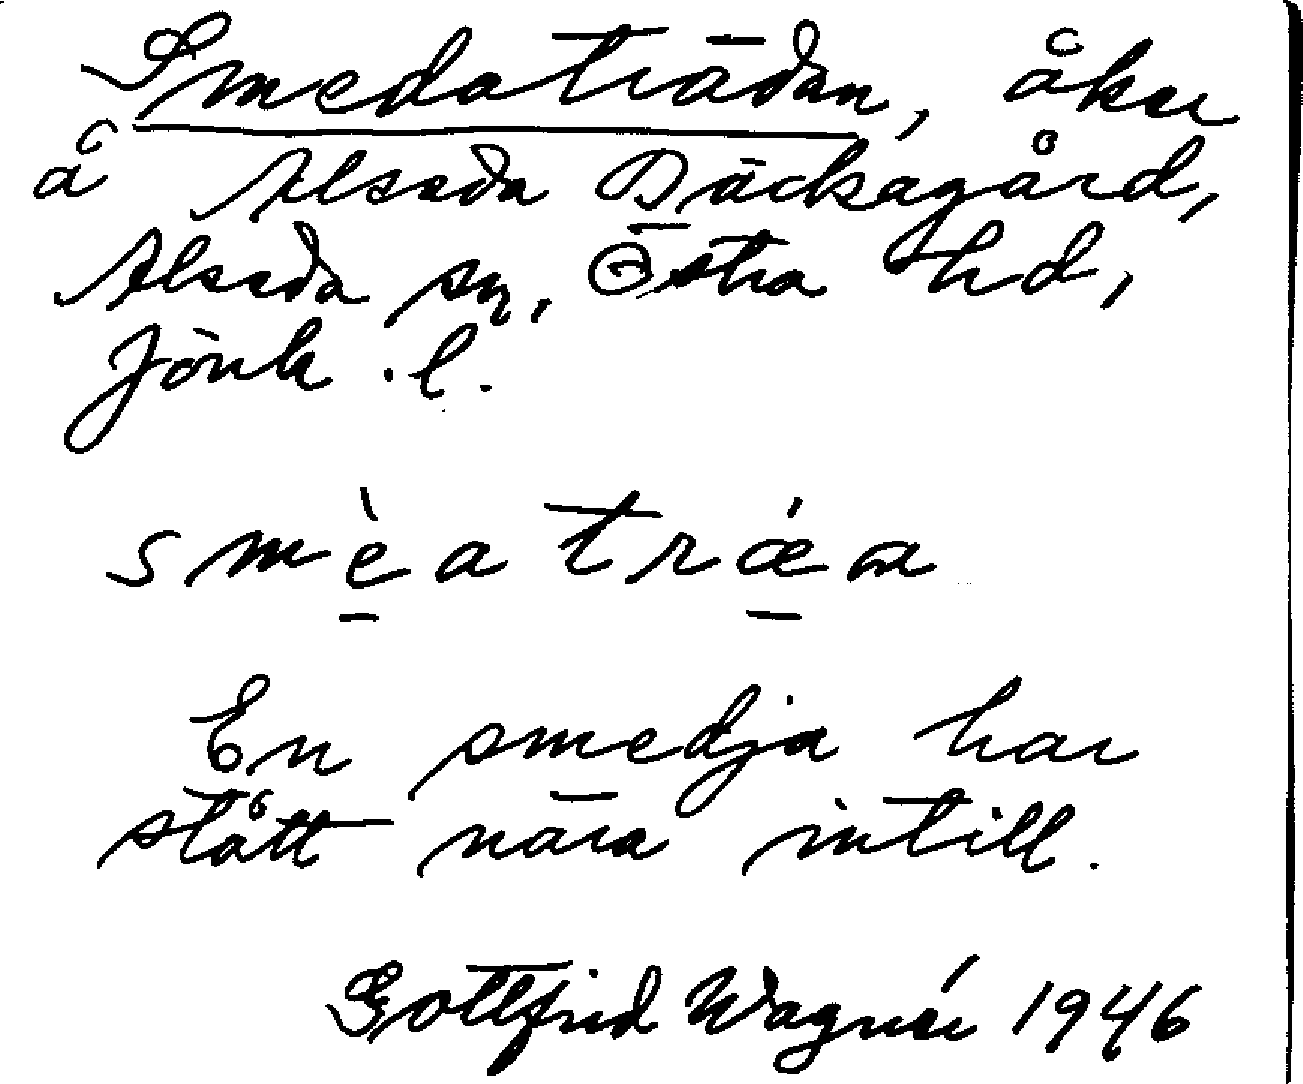 Smedaträdan, åker
å Alseda Bäckagård,
Alseda sn, Östra hd,
Jönk. l.
smèatrǽa
En smedja har
stått nära intill.
Gottfrid Wagnér 1946